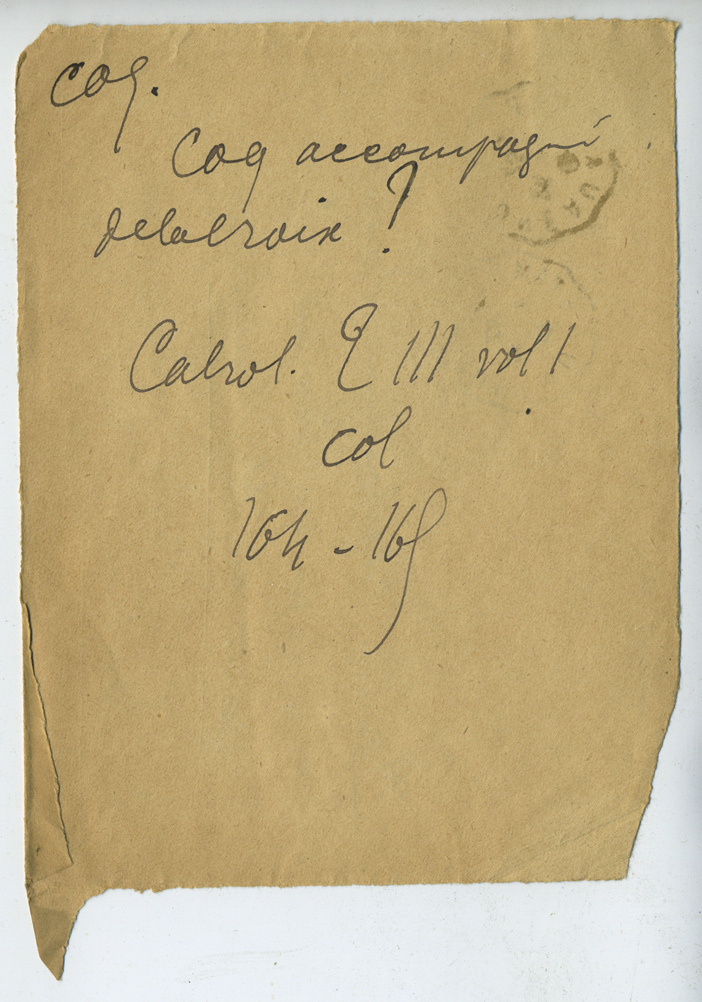 Coq.
Coq accompagné
delacroix ?
Cabrol. E III vol 1
col
164-165